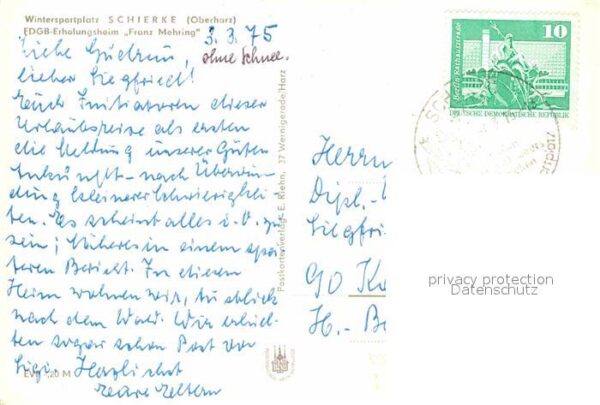 Wintersportplatz SCHIERKE (Oberharz)
FDGB-Erholungsheim „Franz Mehring"
3.3.75
ohne Schnee.
Liebe Gudrun,
lieber Siegfried!
Euch Initiatoren dieser
Urlaubsreise als ersten
die Meldung unserer guten
Ankunft – nach Überwin-
dung kleinerer Schwierigkei-
ten. Es scheint alles i.O. zu
sein; Näheres in einem spä-
teren Bericht. In diesem
Heim wohnen wir, Ausblick
nach dem Wald. Wir erhiel-
ten sogar schon Post von
Sigi. Herzlichst
Eure Eltern
EVP -,20 M
Postkartenverlag E. Riehn, 37 Wernigerode/Harz
Herrn
Dipl.-
Siegfri
90 Ka
H.-Be
10
Berlin Rathausstraße
DEUTSCHE DEMOKRATISCHE REPUBLIK
privacy protection
Datenschutz